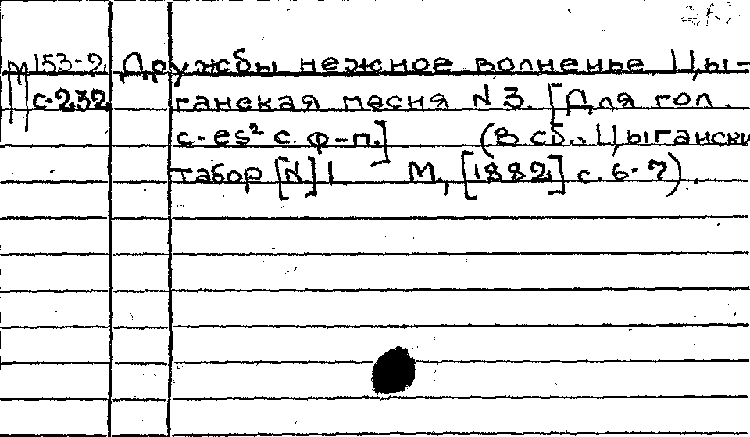 М 153-2 Дружбы нежное волненье Цы-
с-232 ганская песня N 3. [Для гол.
c-es² с ф-п.] (В сб.: Цыгански
табор [N] 1 М., [1882] с. 6-7).